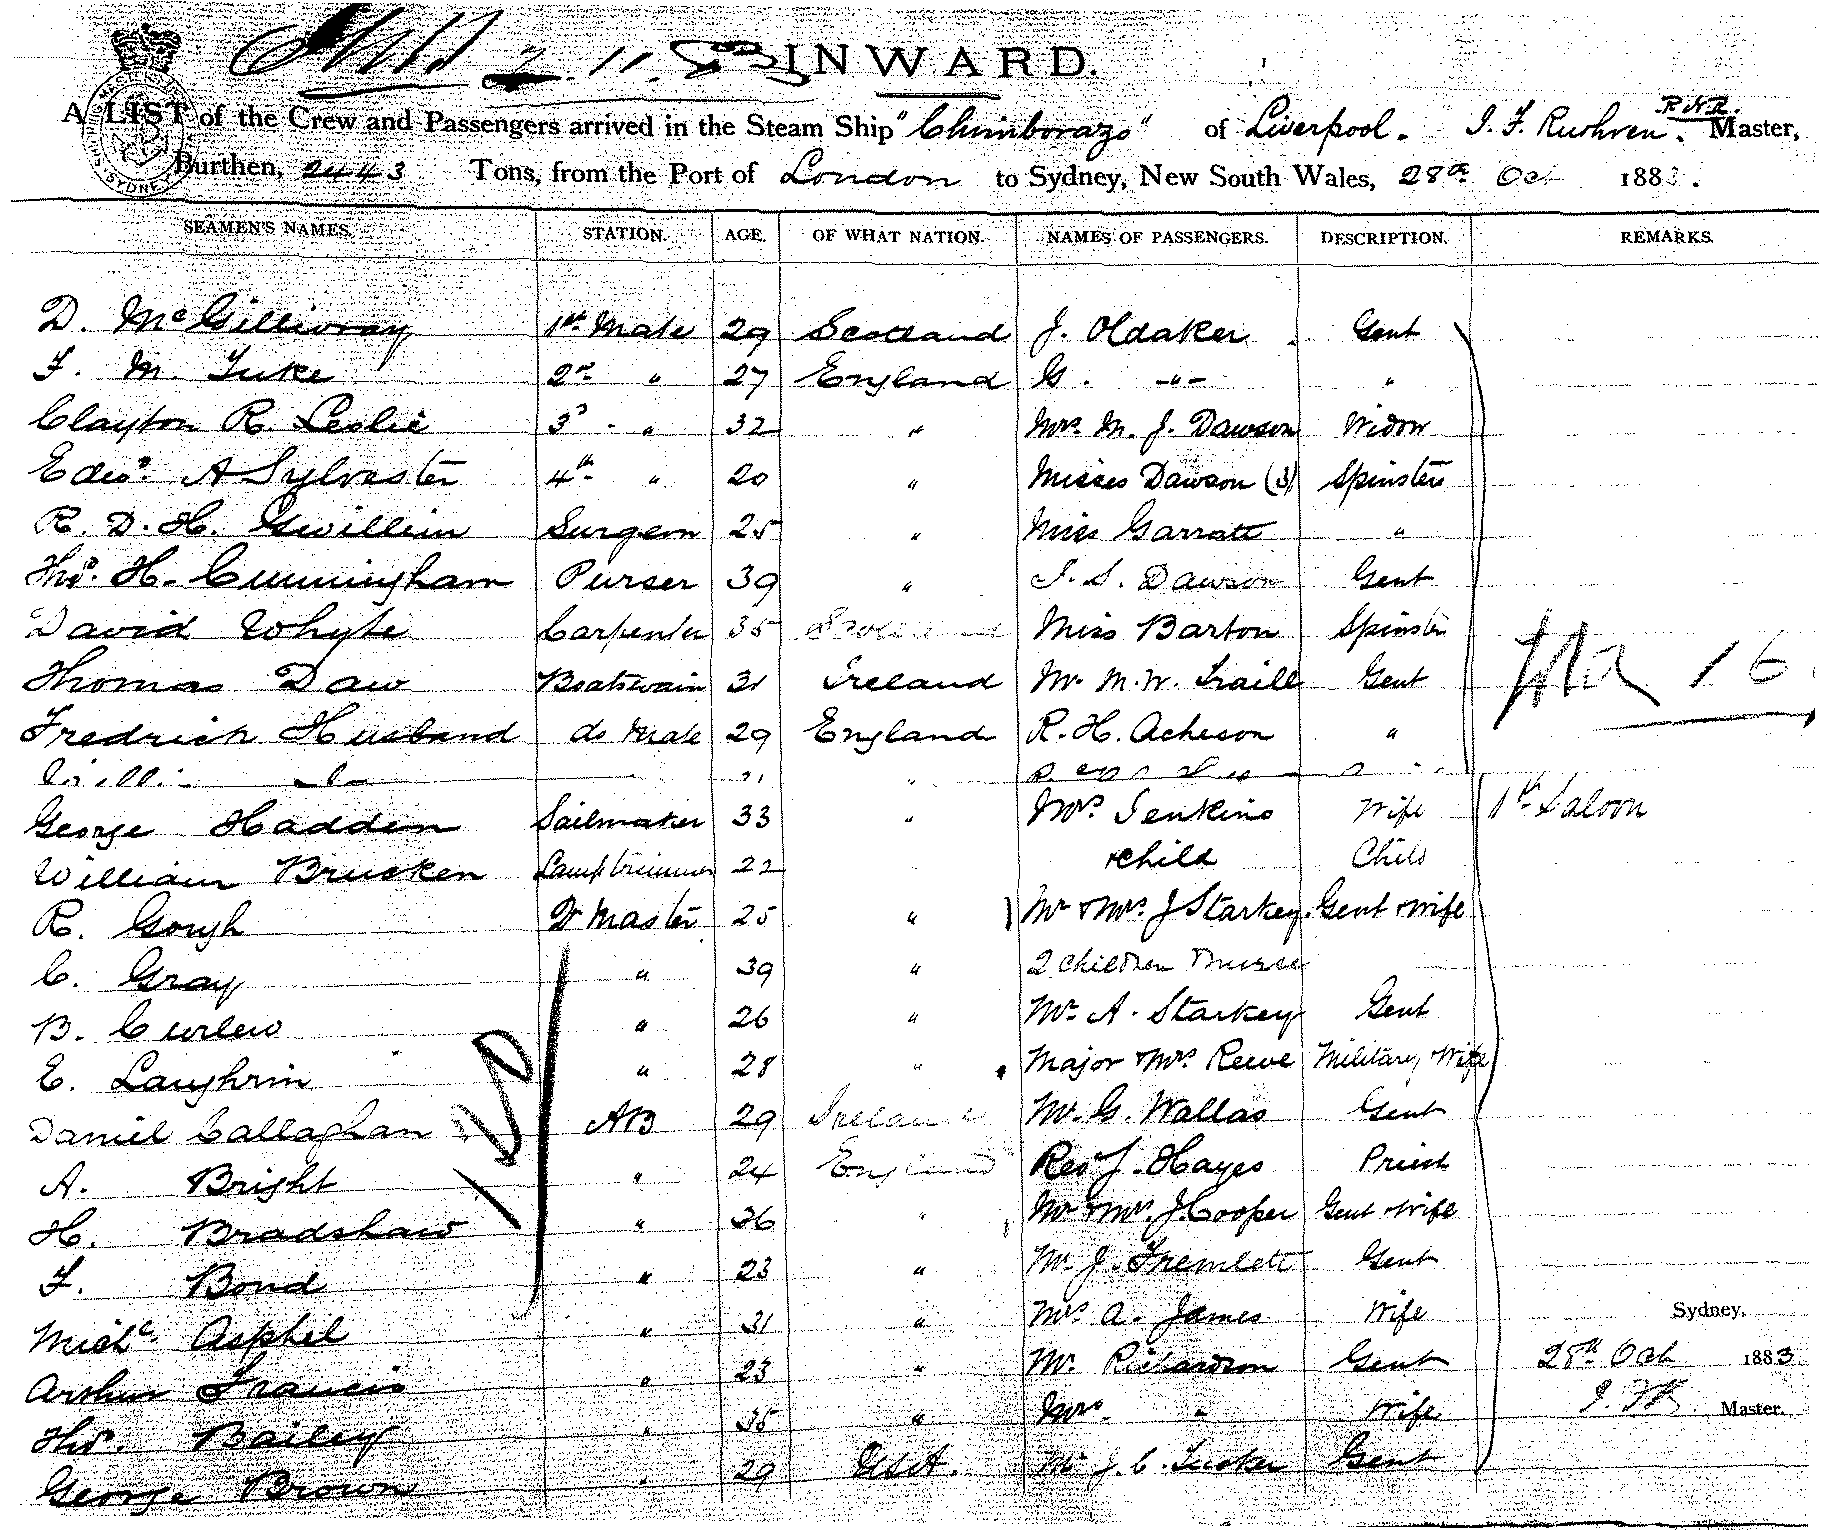 2. 11. 83 INWARD.
A LIST of the Crew and Passengers arrived in the Steam Ship "Chimborazo" of Liverpool. J. F. Ruthven. R.N.R. Master,
Burthen, 2443 Tons, from the Port of London to Sydney, New South Wales, 28th Oct 1883.
SEAMEN'S NAMES. STATION. AGE. OF WHAT NATION. NAMES OF PASSENGERS. DESCRIPTION. REMARKS.
D. McGillivray 1st Mate 29 Scotland J. Oldaker Gent
F. M. Tuke 2nd " 27 England G. -"- "
Clayton R. Leslie 3d " 32 " Mrs. M. J. Dawson Widow
Edwd. A Sylvester 4th " 20 " Misses Dawson (3) Spinsters
R. D. H. Gwillim Surgeon 25 " Miss Garratt "
Thos. H. Cunningham Purser 39 " J. S. Dawson Gent
David Whyte Carpenter 35 Scotland Miss Barton Spinster
Thomas Daw Boatswain 31 Ireland Mr. M. W. Traill Gent 16
Fredrick Husband do Mate 29 England R. H. Acheson Gent "
George Hadden Sailmaker 33 " Mrs Jenkins Wife 1st Saloon
William Brucken Lamptrimmer 22 & child Child
R. Gough Qr Master 25 " Mr & Mrs. J Starkey Gent & Wife
C. Gray " 39 " 2 Children & nurse
B. Curlew " 26 " Mr. A. Starkey Gent
E. Laughrin " 28 " Major & Mrs Reeve Military & Wife
Daniel Callaghan AB 29 Ireland Mr. G. Wallas Gent
A. Bright " 24 England Rev J. Hayes Priest
H. Bradshaw " 36 " Mr & Mrs. J. Cooper Gent & Wife
F. Bond " 23 " Mr. J. Tremlett Gent
Michl. Asphel " 31 " Mrs A. James Wife Sydney.
Arthur Francis " 23 " Mr. Richardson Gent 28th Oct 1883
Thos. Bailey " 35 " Mrs. " Wife Master.
George Brown " 29 USA. Mr J. C. Tucker Gent